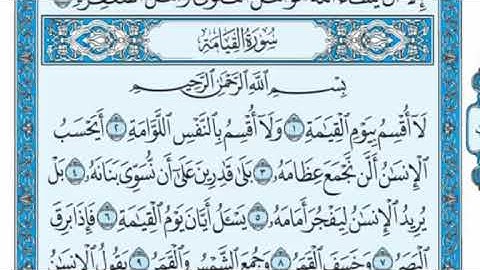 سُورَةُ القِيَامَةِ
بِسْمِ اللَّهِ الرَّحْمَٰنِ الرَّحِيمِ
لَآ أُقْسِمُ بِيَوْمِ الْقِيَٰمَةِ ١ وَلَآ أُقْسِمُ بِالنَّفْسِ اللَّوَّامَةِ ٢ أَيَحْسَبُ
الْإِنسَٰنُ أَلَّن نَّجْمَعَ عِظَامَهُۥ ٣ بَلَىٰ قَٰدِرِينَ عَلَىٰٓ أَن نُّسَوِّىَ بَنَانَهُۥ ٤ بَلْ
يُرِيدُ الْإِنسَٰنُ لِيَفْجُرَ أَمَامَهُۥ ٥ يَسْـَٔلُ أَيَّانَ يَوْمُ الْقِيَٰمَةِ ٦ فَإِذَا بَرِقَ
الْبَصَرُ ٧ وَخَسَفَ الْقَمَرُ ٨ وَجُمِعَ الشَّمْسُ وَالْقَمَرُ ٩ يَقُولُ الْإِنسَٰنُ